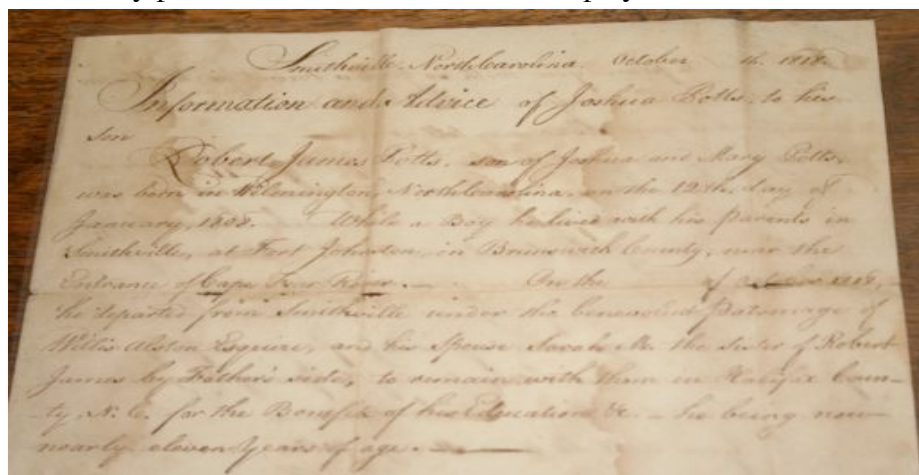 Smithville, North Carolina. October 16. 1818.
Information and Advice of Joshua Potts, to his
son
Robert James Potts, son of Joshua and Mary Potts,
was born in Wilmington, North Carolina, on the 12th. day of
January, 1808. While a Boy he lived with his parents in
Smithville, at Fort Johnston, in Brunswick County, near the
Entrance of Cape Fear River. — On the of October 1818,
he departed from Smithville under the benevolent Patronage of
Willis Alston Esquire, and his Spouse Sarah M. the Sister of Robert
James by Father's side, to remain with them in Halifax Coun-
-ty, N. C. for the Benefit of his Education &c. — he being now
nearly eleven Years of age. —